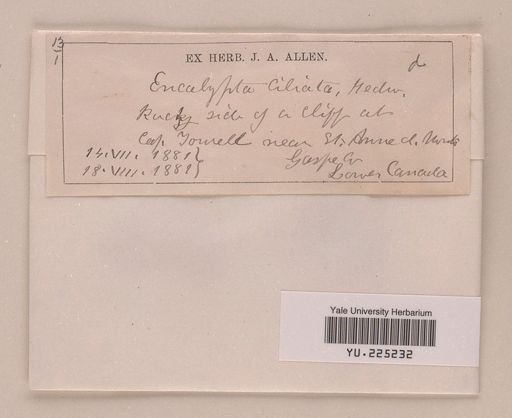 13
1
EX HERB. J. A. ALLEN.
Encalypta ciliata, Hedw.
Rocky side of a cliff at
near St. Anne d. Monts
14. VII. 1881
Gaspe Co
18. VIII. 1881
Lower Canada
Yale University Herbarium
YU.225232